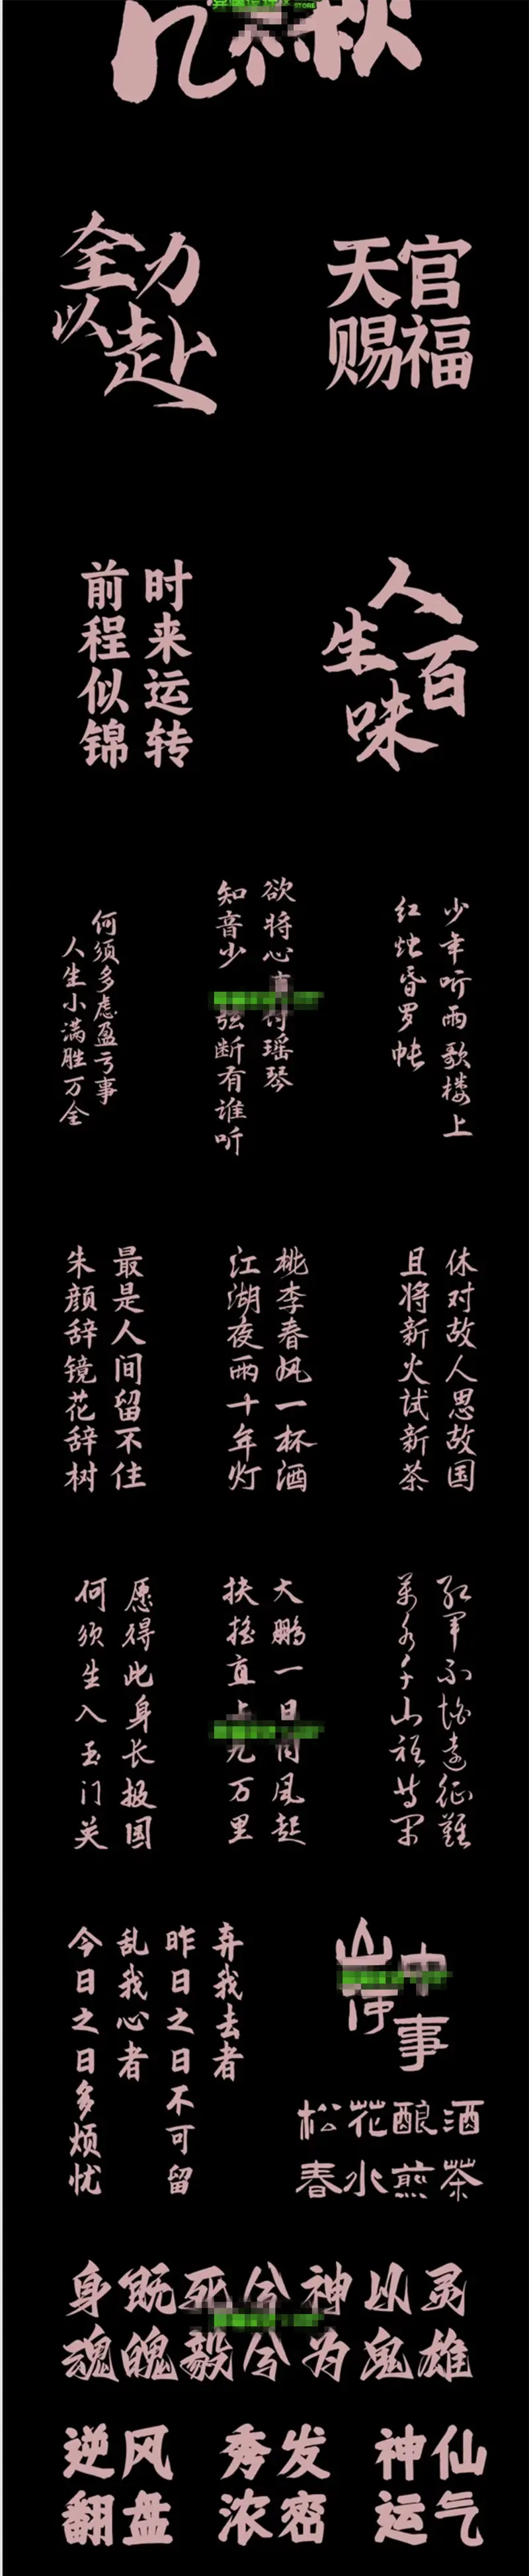 STORE
全力
以赴
天官
赐福
时来运转
前程似锦
人生百味
何须多虑盈亏事
人生小满胜万全
欲将心事付瑶琴
知音少
弦断有谁听
少年听雨歌楼上
红烛昏罗帐
最是人间留不住
朱颜辞镜花辞树
桃李春风一杯酒
江湖夜雨十年灯
休对故人思故国
且将新火试新茶
愿得此身长报国
何须生入玉门关
大鹏一日同风起
扶摇直上九万里
红军不怕远征难
万水千山只等闲
弃我去者
昨日之日不可留
乱我心者
今日之日多烦忧
山中
何事
松花酿酒
春水煎茶
身既死兮神以灵
魂魄毅兮为鬼雄
逆风
翻盘
秀发
浓密
神仙
运气